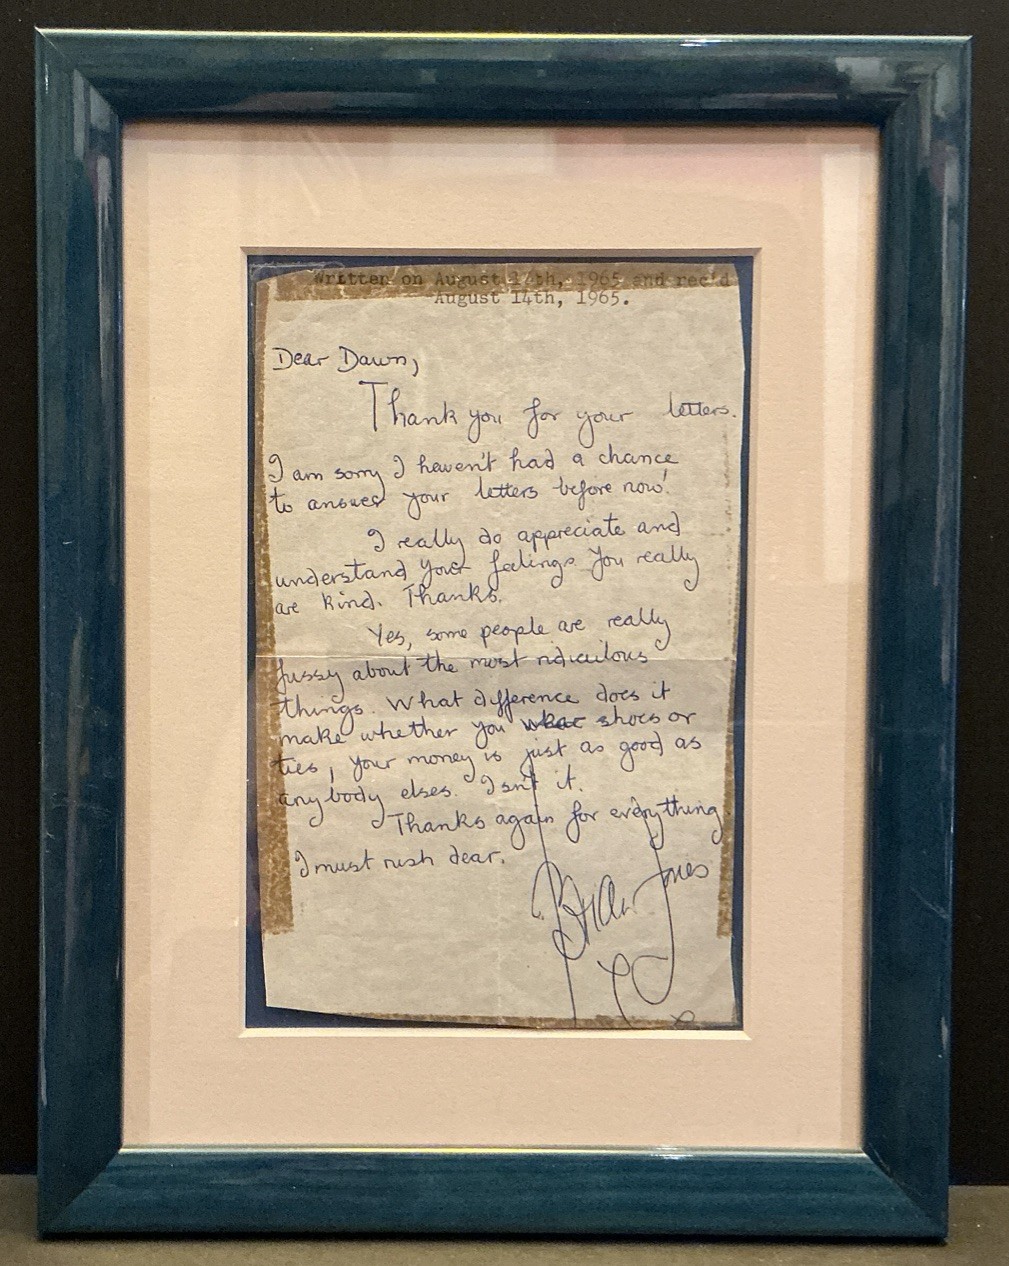 Written on August 14th, 1965 and rec'd
August 14th, 1965.
Dear Dawn,
Thank you for your letters.
I am sorry I haven't had a chance
to answer your letters before now!
I really do appreciate and
understand your feelings. You really
are kind. Thanks.
Yes, some people are really
fussy about the most ridiculous
things. What difference does it
make whether you wear shoes or
ties, your money is just as good as
anybody elses. Isn't it.
Thanks again for everything
I must rush dear.
Brian Jones